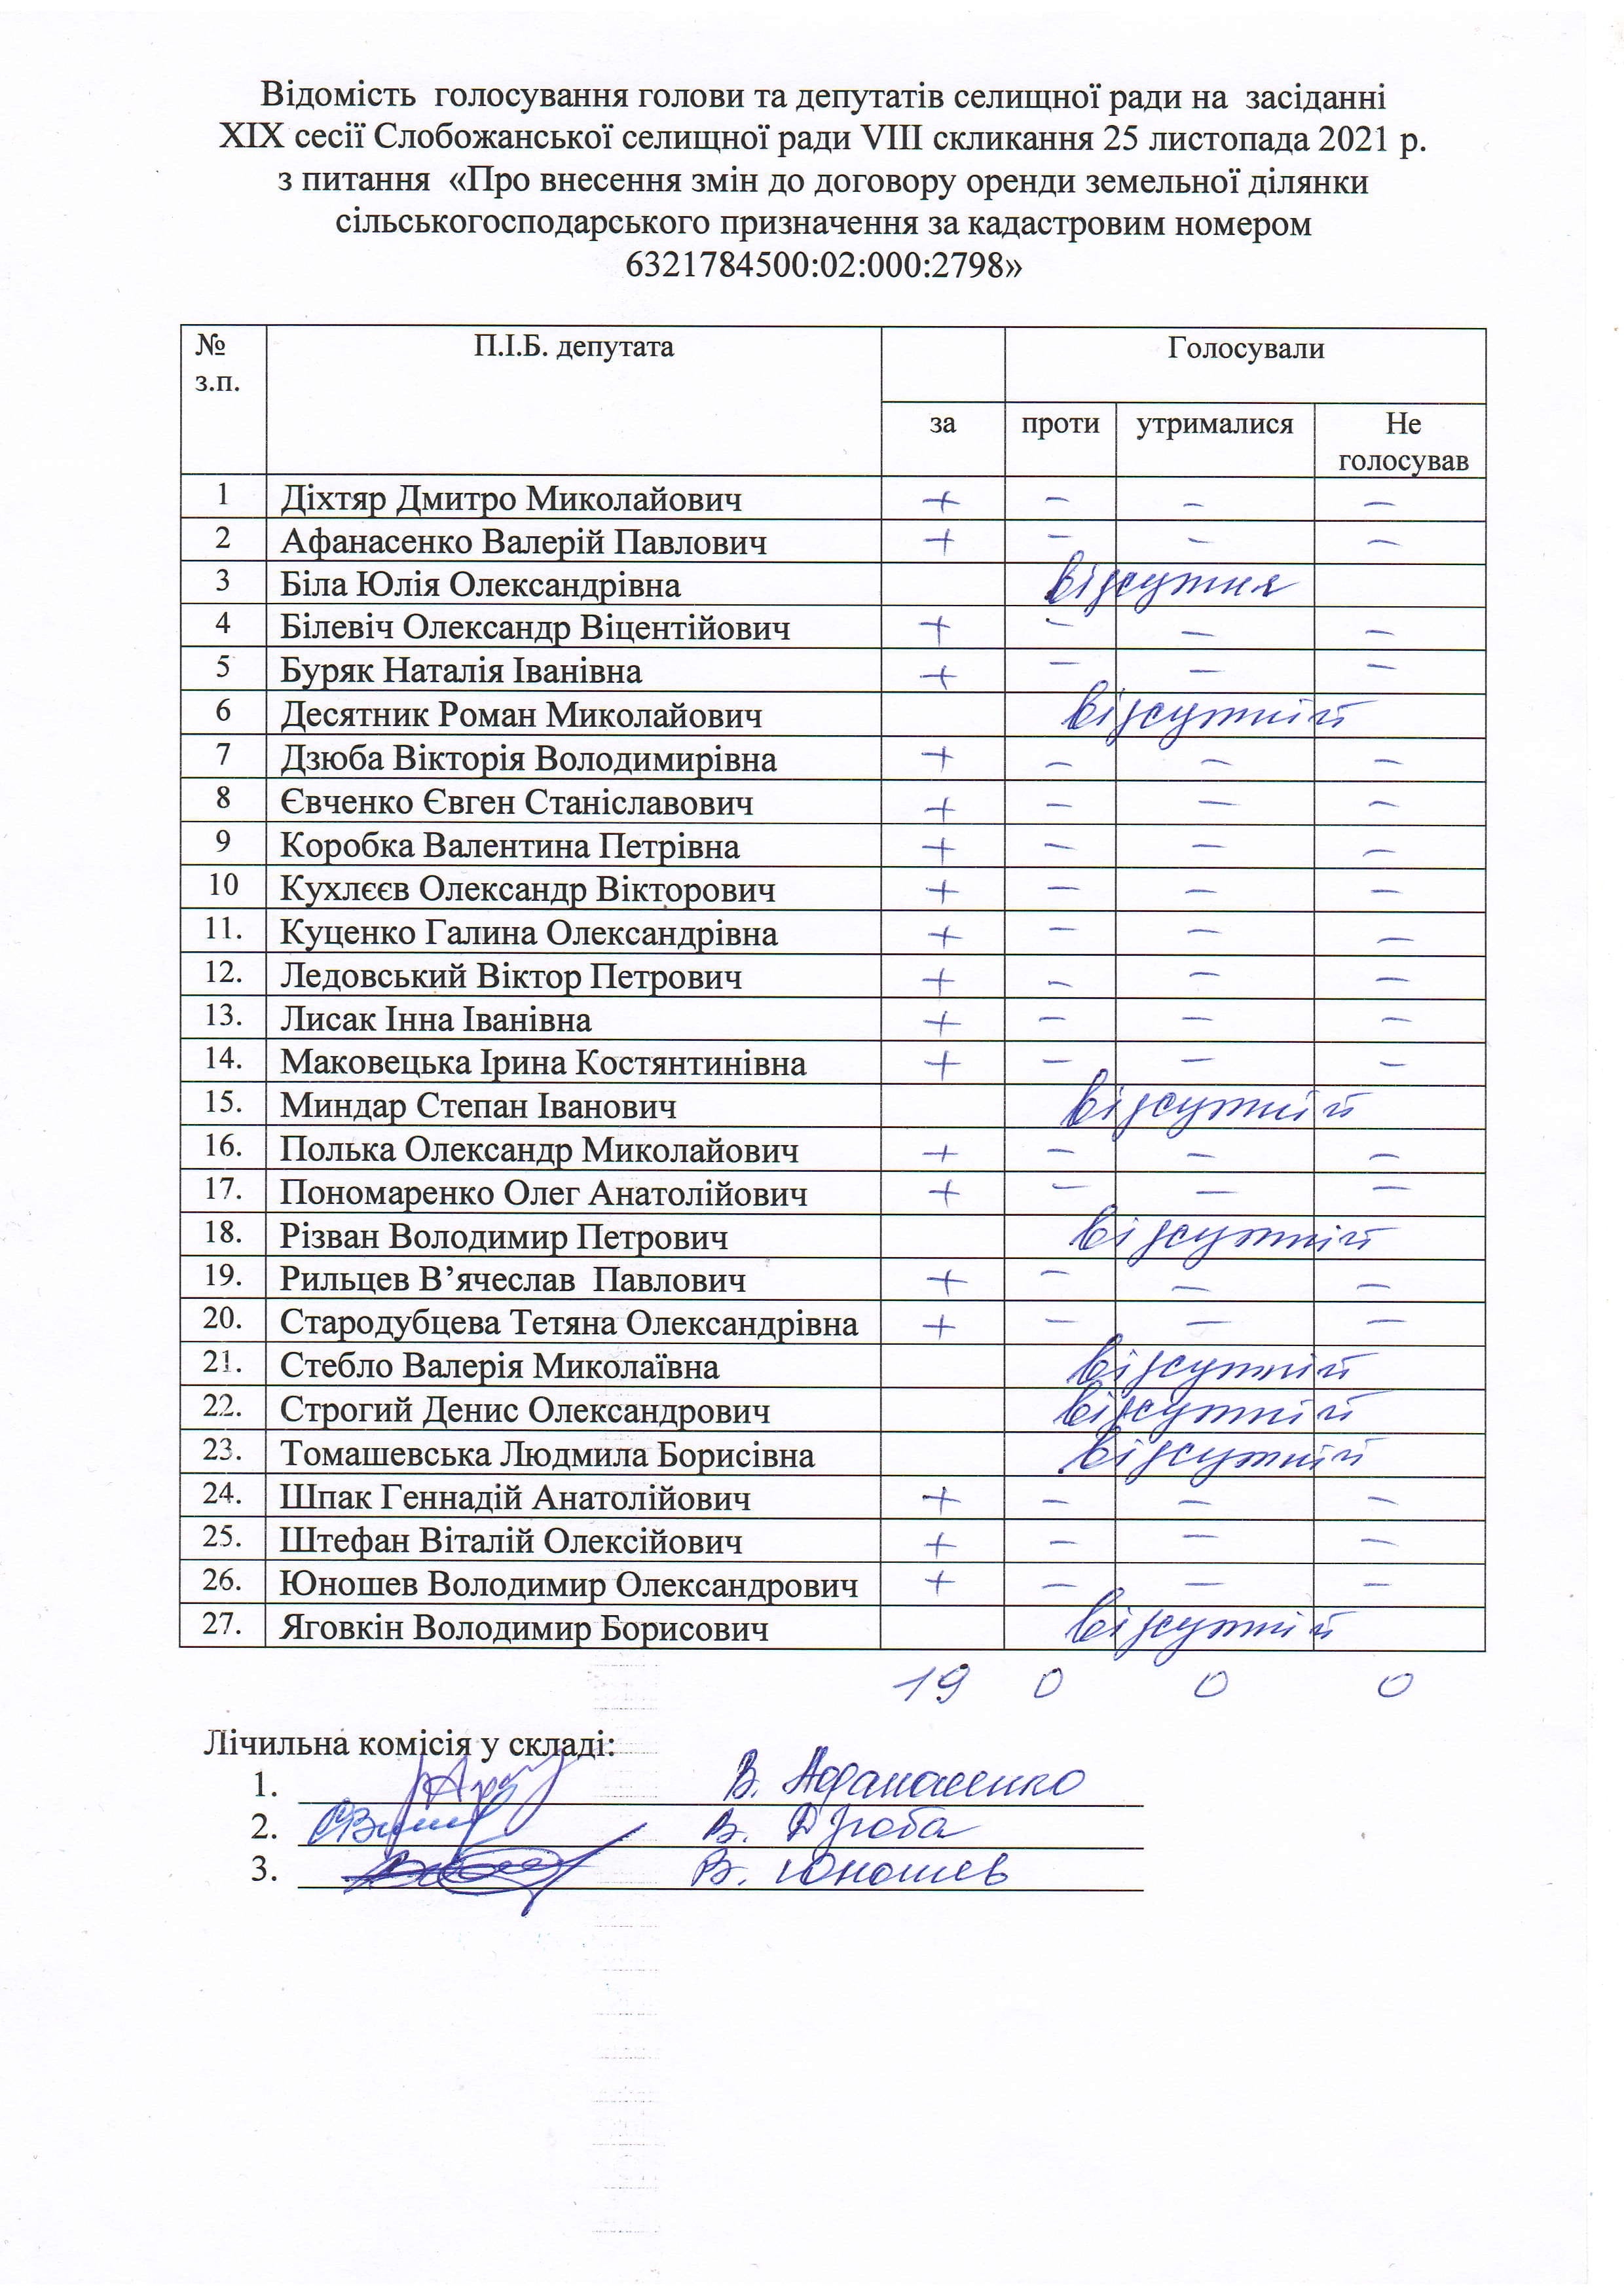 Відомість голосування голови та депутатів селищної ради на засіданні
XIX сесії Слобожанської селищної ради VIII скликання 25 листопада 2021 р.
з питання «Про внесення змін до договору оренди земельної ділянки
сільськогосподарського призначення за кадастровим номером
6321784500:02:000:2798»
№ з.п. П.І.Б. депутата Голосували
за проти утрималися Не голосував
1 Діхтяр Дмитро Миколайович + – – –
2 Афанасенко Валерій Павлович + – – –
3 Біла Юлія Олександрівна відсутня
4 Білевіч Олександр Віцентійович + – – –
5 Буряк Наталія Іванівна + – – –
6 Десятник Роман Миколайович відсутній
7 Дзюба Вікторія Володимирівна + – – –
8 Євченко Євген Станіславович + – – –
9 Коробка Валентина Петрівна + – – –
10 Кухлєєв Олександр Вікторович + – – –
11. Куценко Галина Олександрівна + – – –
12. Ледовський Віктор Петрович + – – –
13. Лисак Інна Іванівна + – – –
14. Маковецька Ірина Костянтинівна + – – –
15. Миндар Степан Іванович відсутній
16. Полька Олександр Миколайович + – – –
17. Пономаренко Олег Анатолійович + – – –
18. Різван Володимир Петрович відсутній
19. Рильцев В’ячеслав Павлович + – – –
20. Стародубцева Тетяна Олександрівна + – – –
21. Стебло Валерія Миколаївна відсутній
22. Строгий Денис Олександрович відсутній
23. Томашевська Людмила Борисівна відсутній
24. Шпак Геннадій Анатолійович + – – –
25. Штефан Віталій Олексійович + – – –
26. Юношев Володимир Олександрович + – – –
27. Яговкін Володимир Борисович відсутній
19 0 0 0
Лічильна комісія у складі:
1. В. Афанасенко
2. В. Дзюба
3. В. Юношев